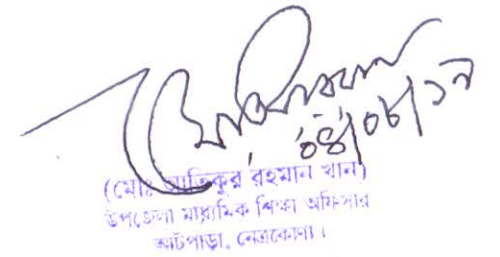 ০৪/০৮/১৭
(মোঃ আতিকুর রহমান খান)
উপজেলা মাধ্যমিক শিক্ষা অফিসার
আটপাড়া, নেত্রকোণা।